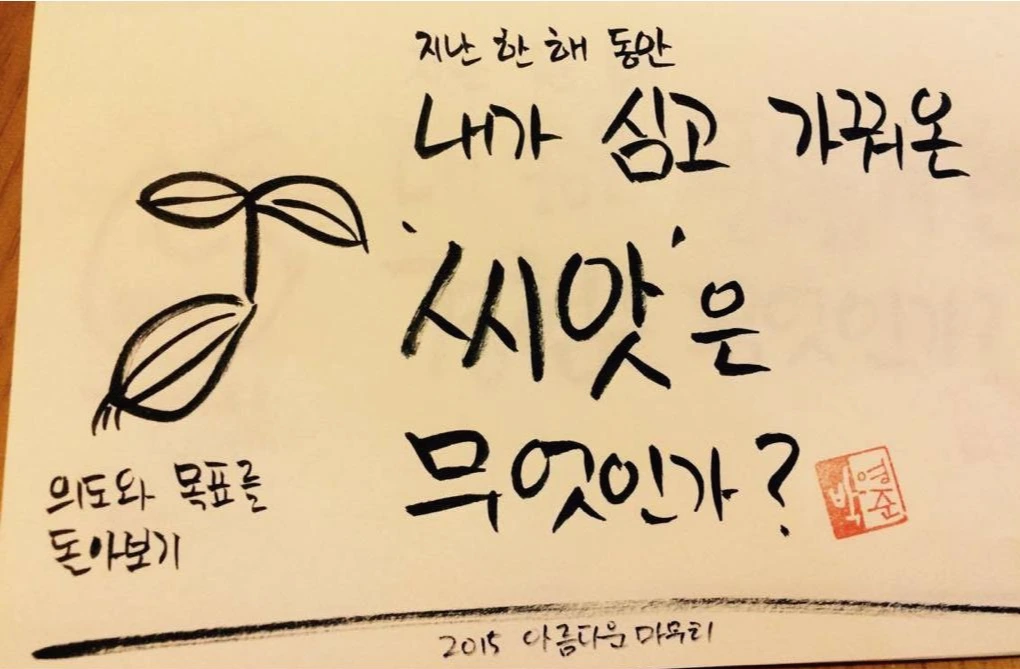 지난 한 해 동안
내가 심고 가꿔온
'씨앗'은
무엇인가?
박영준
의도와 목표를
돌아보기
2015 아름다운 마무리